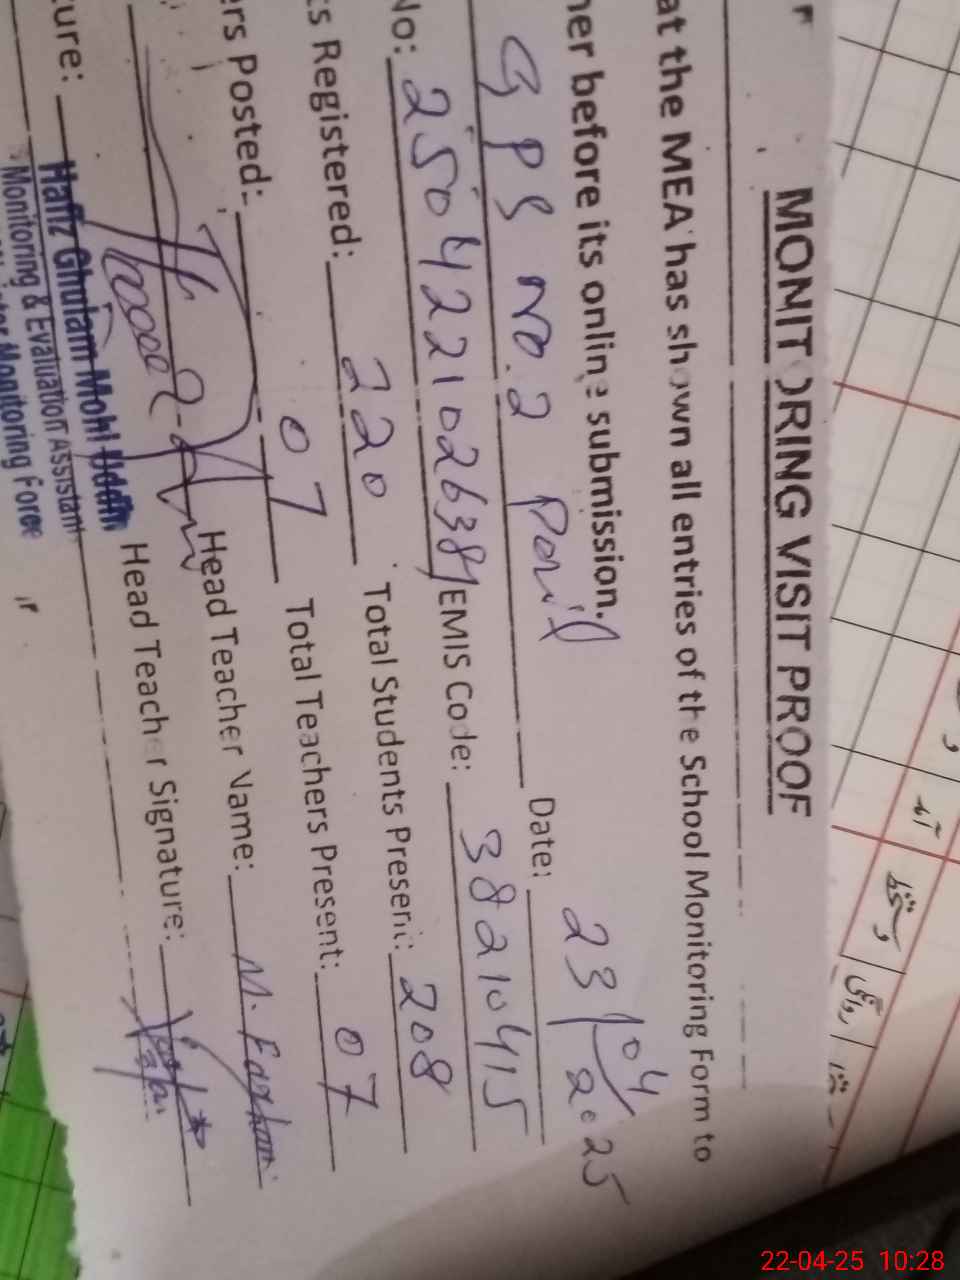 MONITORING VISIT PROOF
at the MEA has shown all entries of the School Monitoring Form to
her before its online submission.
GPS No.2 Date: 23/04/2025
No: 2504221026381 EMIS Code: 38210415
ts Registered: 220 Total Students Present: 208
ers Posted: 07 Total Teachers Present: 07
Head Teacher Name: M.
ture: Head Teacher Signature:
Hafiz Ghulam Mohi Uddin
Monitoring & Evaluation Assistant
Monitoring Force
22-04-25 10:28